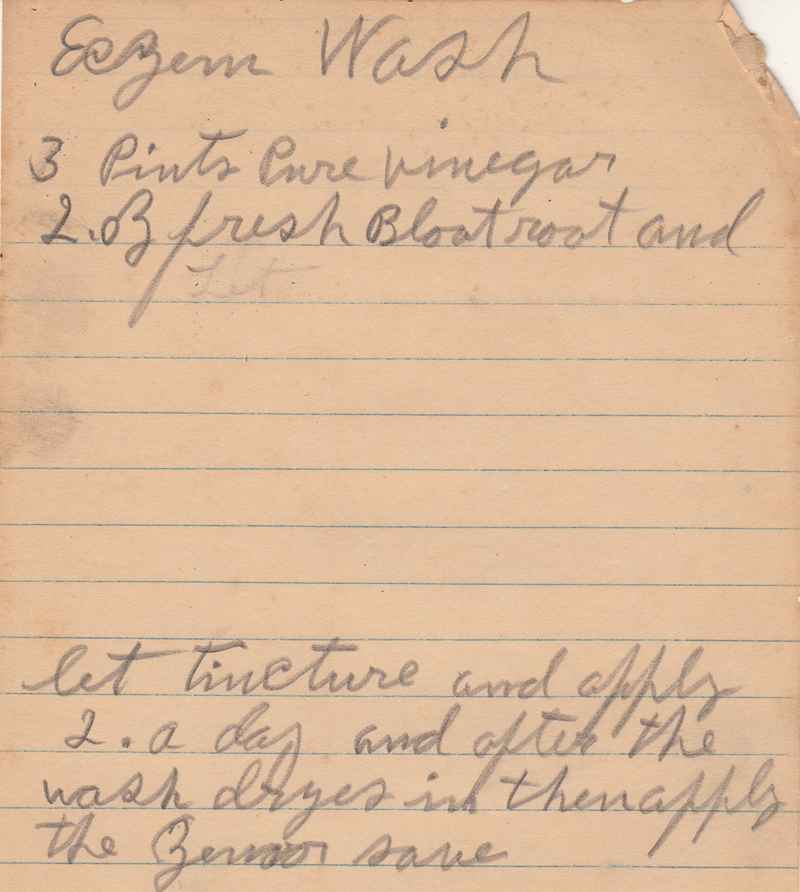 Eczem Wash
3 Pints Pure vinegar
2. oz fresh Blootroot and
Let
let tincture and apply
2. a day and after the
wash dryes in then apply
the Zemor save